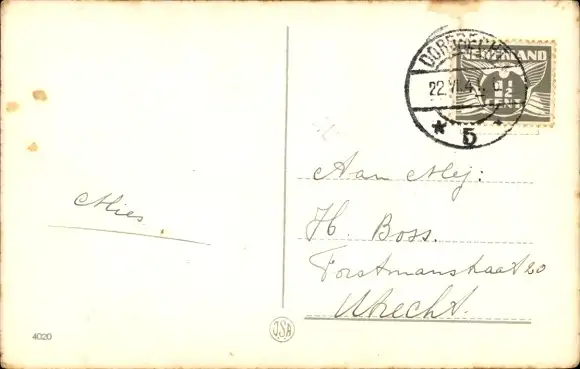 DORDRECHT
22.VI.4
5
NEDERLAND
1½
CENT
Aan Mej:
H. Boss.
Forstmanstraat 20
Utrecht.
Mies.
4020
JSA